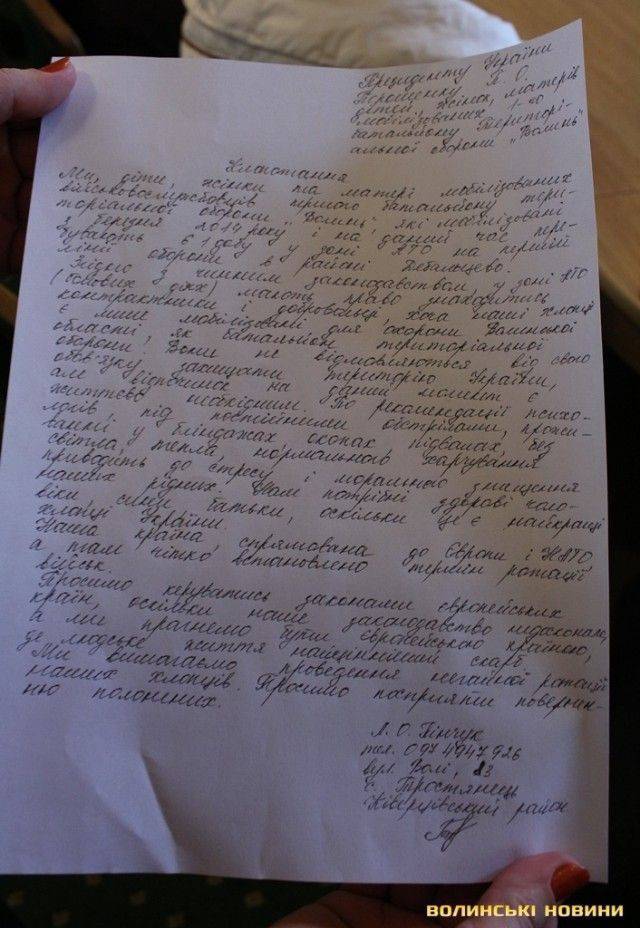 Президенту України
Порошенку П. О.
дітей, жінок, матерів
мобілізованих 1-го
батальйону Територі-
альної оборони "Волинь"
Клопотання
Ми, діти, жінки та матері мобілізованих
військовослужбовців першого батальйону тери-
торіальної оборони "Волинь", які мобілізовані
з березня 2014 року і на даний час пере-
бувають 61 добу у зоні АТО на першій
лінії оборони в районі Дебальцево.
Згідно з чинним законодавством, у зоні АТО
(бойових дій) мають право знаходитись
контрактники і добровольці, хоча наші хлопці
є лише мобілізовані для охорони Волинської
області, як батальйон територіальної
оборони. Вони не відмовляються від свого
обов'язку захищати територію України,
але відпочинок на даний момент є
життєво необхідним. По рекомендації психо-
логів, під постійними обстрілами, прожи-
ванні у бліндажах окопах підвалах, без
світла, тепла, нормального харчування
приводить до стресу і морального знищення
наших рідних. Нам потрібні здорові чоло-
віки, сини, батьки, оскільки це є найкращі
хлопці України.
Наша країна спрямована до Європи і НАТО,
а там чітко встановлено термін ротації
військ.
Просимо керуватись законами європейських
країн, оскільки наше законодавство недосконале,
а ми прагнемо бути європейською країною,
де людське життя найцінніший скарб.
Ми вимагаємо проведення негайної ротації
наших хлопців. Просимо посприяти повернен-
ню полонених.
Л. О. Гінчук
тел. 0974947926
вул. Ролі, 83
с. Тростянець
Ківерцівський район
ВОЛИНСЬКІ НОВИНИ